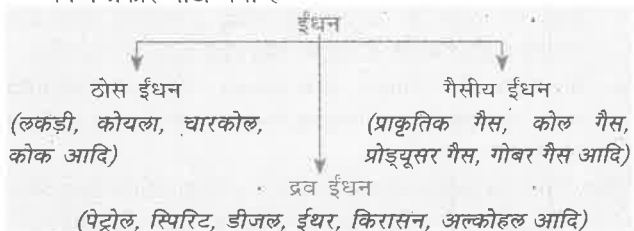 ईंधन
ठोस ईंधन
(लकड़ी, कोयला, चारकोल,
कोक आदि)
गैसीय ईंधन
(प्राकृतिक गैस, कोल गैस,
प्रोड्यूसर गैस, गोबर गैस आदि)
द्रव ईंधन
(पेट्रोल, स्पिरिट, डीजल, ईथर, किरासन, अल्कोहल आदि)